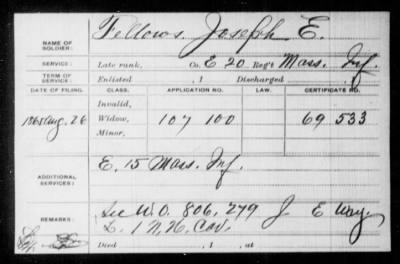 Fellows, Joseph E.
NAME OF SOLDIER:
SERVICE: Late rank, Co. E 20 Reg't Mass. Inf.
TERM OF SERVICE: Enlisted , 1 Discharged , 1
DATE OF FILING. CLASS. APPLICATION NO. LAW. CERTIFICATE NO.
Invalid,
1865 Aug. 26 Widow, 107 100 69 533
Minor,
E. 15 Mass. Inf.
ADDITIONAL SERVICES:
See W.O. 806,279 J E Way
REMARKS: L. 1 N.H. Cav.
Died , 1 , at